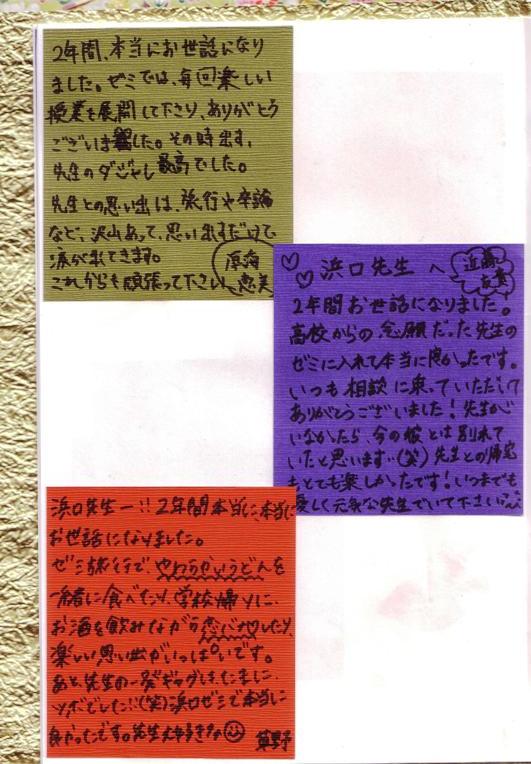 2年間、本当にお世話になり
ました。ゼミでは、毎回楽しい
授業を展開して下さり、ありがとう
ございました。その時出す、
先生のダジャレ最高でした。
先生との思い出は、旅行や卒論
など、沢山あって、思い出すだけで
涙が出てきます。
これからも頑張って下さい
恵美
浜口先生へ
近藤
2年間お世話になりました。
高校からの念願だった先生の
ゼミに入れて本当に良かったです。
いつも相談に乗っていただいて
ありがとうございました!先生が
いなかったら、今の彼とは別れて
いたと思います…(笑)先生との帰宅
もとても楽しかったです!いつまでも
愛しく元気な先生でいて下さい
浜口先生ー!!2年間本当に、本当に
お世話になりました。
ゼミ旅行で、やわらかいうどんを
一緒に食べたり、学校帰りに、
お酒を飲みながら恋バナしたり、
楽しい思い出がいっぱいです。
あと、先生の一発ギャグはたまに、
ツボでした!!(笑)浜口ゼミで本当に
良かったです。先生大好きな
草野